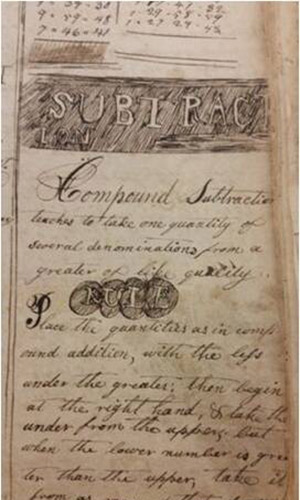 7 = 46 = 41
SUBTRACT
ION
Compound Subtraction
teaches to take one quantity of
several denominations from a
greater of like quality.
RULE
Place the quantities as in comp
ound addition, with the less
under the greater; then begin
at the right hand, & take the
under from the upper; but
when the lower number is grea
ter than the upper, take it
from as